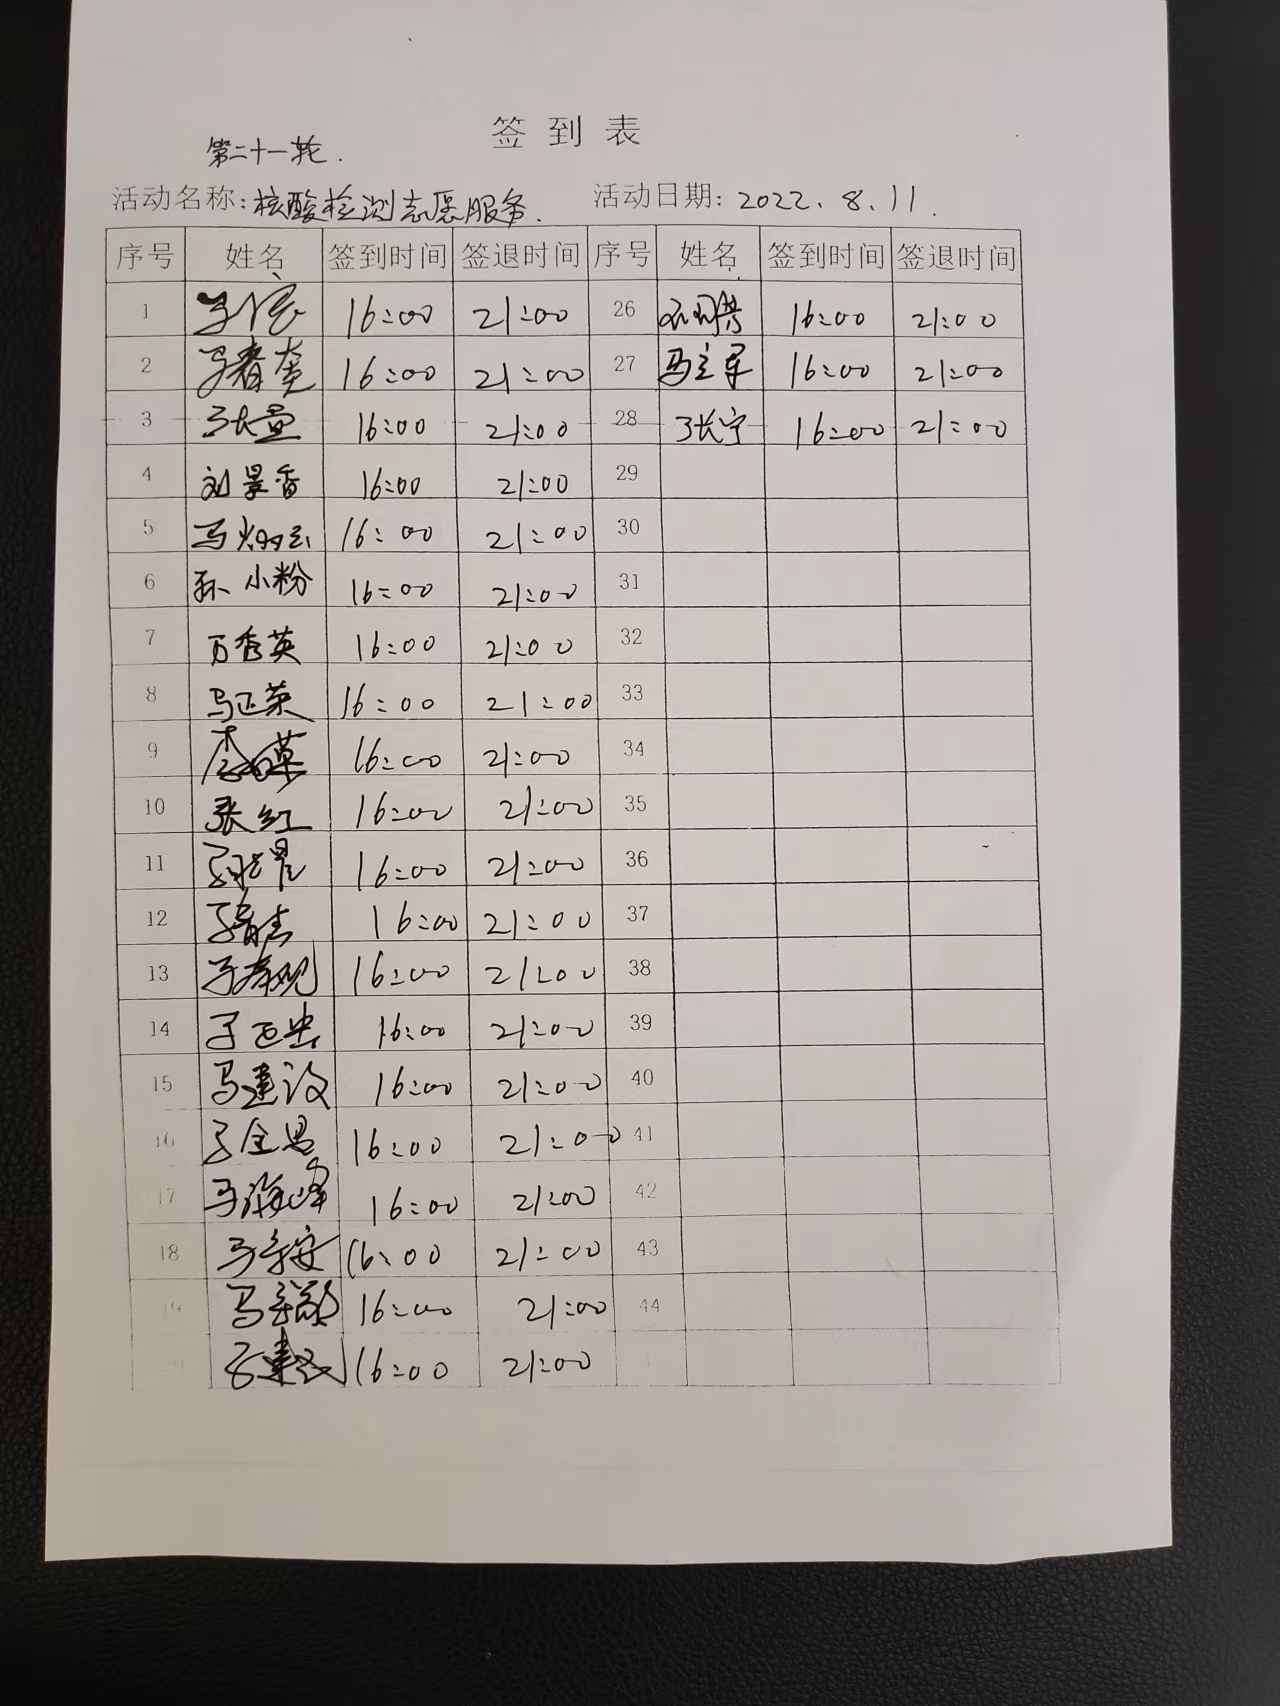 签到表
第二十一轮.
活动名称:核酸检测志愿服务. 活动日期:2022.8.11.
序号 姓名 签到时间 签退时间 序号 姓名 签到时间 签退时间
1 16:00 21:00 26 16:00 21:00
2 马春奎 16:00 21:00 27 马立军 16:00 21:00
3 马长量 16:00 21:00 28 马长宁 16:00 21:00
4 刘景香 16:00 21:00 29
5 16:00 21:00 30
6 孙小粉 16:00 21:00 31
7 万秀英 16:00 21:00 32
8 马正英 16:00 21:00 33
9 16:00 21:00 34
10 张红 16:00 21:00 35
11 16:00 21:00 36
12 16:00 21:00 37
13 16:00 21:00 38
14 16:00 21:00 39
15 马建设 16:00 21:00 40
16 16:00 21:00 41
17 马海峰 16:00 21:00 42
18 马守安 16:00 21:00 43
19 16:00 21:00 44
16:00 21:00